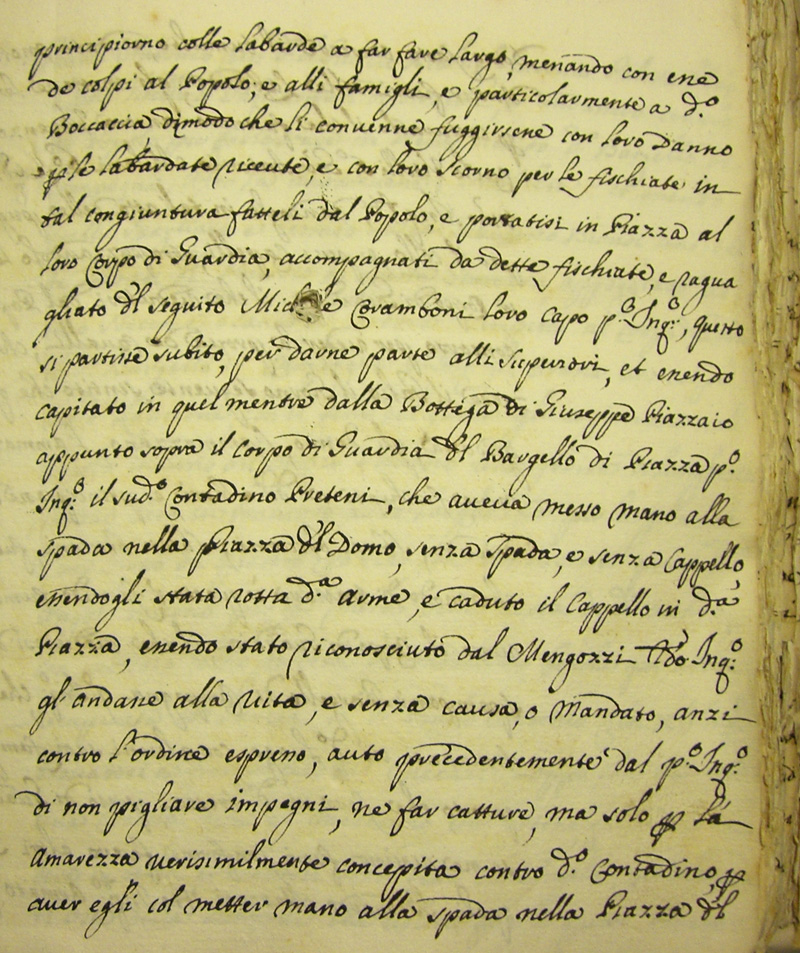 principiorno colle labarde a far fare largo, menando con esse
de colpi al Popolo, e alli famigli, e particolarmente a d.º
Boccaccia dimodo che li convenne fuggirsene con loro danno
p le labardate riceute, e con loro scorno per le fischiate in
tal congiuntura fatteli dal Popolo, e portatisi in Piazza al
loro Corpo di Guardia, accompagnati da dette fischiate, e ragua
gliato dl seguito Coramboni loro capo p.º Inq.º, questo
si partisse subito, per darne parte alli superiori, et essendo
capitato in quel mentre dalla Bottega di Giuseppe Piazzaio
appunto sopra il corpo di Guardia dl Bargello di Piazza p.º
Inq.º il sud.º Contadino Preteni, che aveva messo mano alla
spada nella Piazza dl Domo, senza spada, e senza Cappello,
essendogli stata rotta d.ª arme, e caduto il Cappello in d.ª
Piazza, essendo stato riconosciuto dal Mengozzi Inq.º
gl'andasse alla vita, e senza causa, o Mandato, anzi
contro l'ordine espresso, auto precedentemente dal p.º Inq.º
di non pigliare impegni, ne far catture, ma solo p la
Amarezza verisimilmente concepita contro d.º Contadino, p
aver egli col metter mano alla spada nella Piazza dl